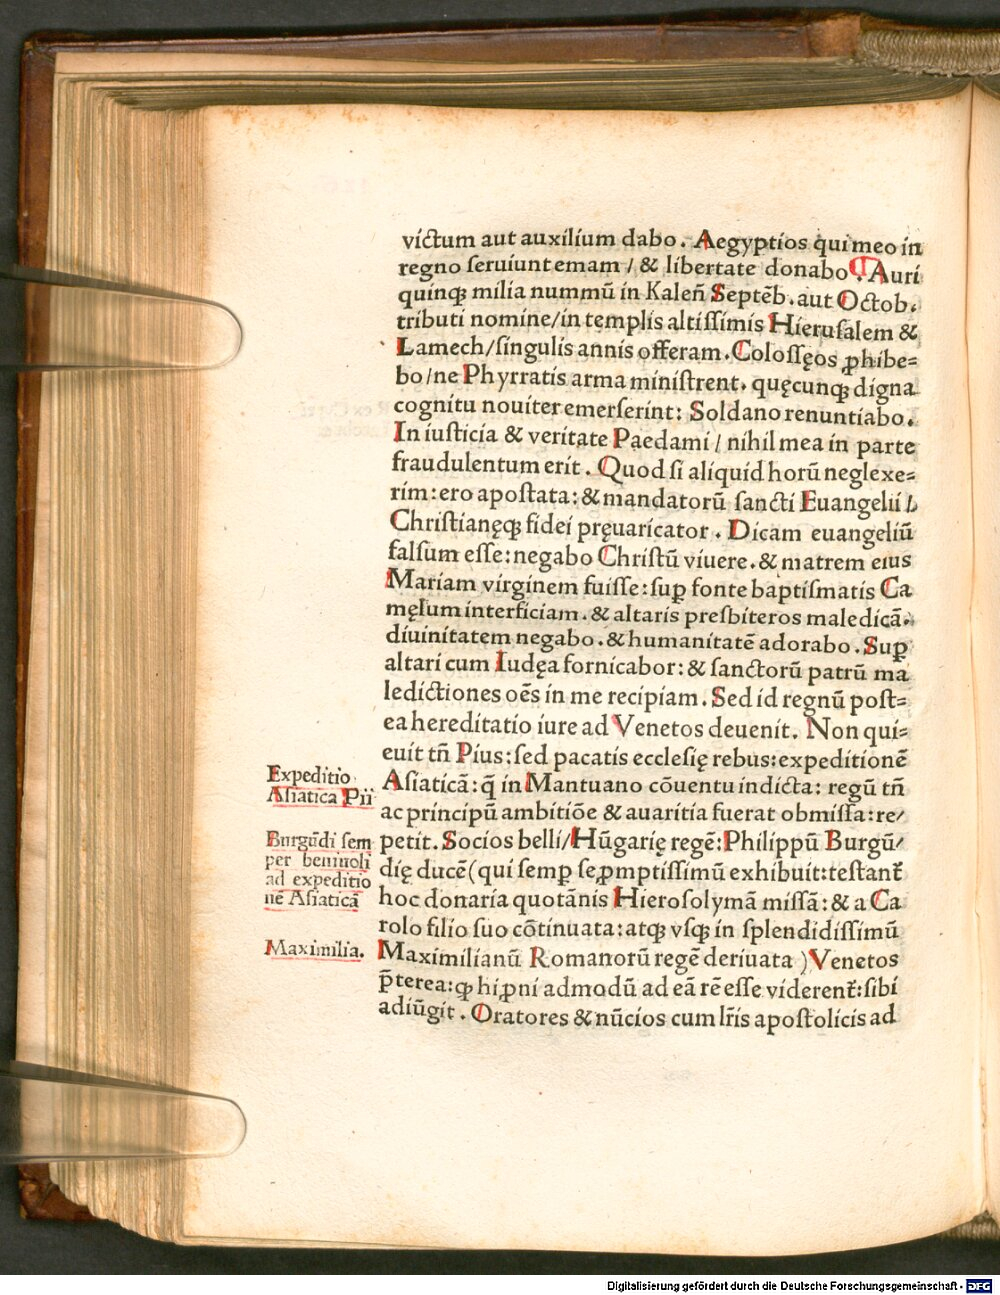 victum aut auxilium dabo. Aegyptios qui meo in
regno ſeruiunt emam / & libertate donabo. ¶ Auri
quinqꝫ milia nummū in Kaleñ Septēb. aut Octob.
tributi nomine/in templis altiſſimis Hieruſalem &
Lamech/ſingulis annis offeram. Coloſſęos ꝓhibe⸗
bo/ne Phyrratis arma miniſtrent. quęcunqꝫ digna
cognitu nouiter emerſerint: Soldano renuntiabo.
In iuſticia & veritate Paedami / nihil mea in parte
fraudulentum erit. Quod ſi aliquid horū neglexe⸗
rim: ero apoſtata: & mandatorū ſancti Euangelii /
Chriſtianęqꝫ fidei pręuaricator. Dicam euangeliū
falſum eſſe: negabo Chriſtū viuere. & matrem eius
Mariam virginem fuiſſe: ſuꝑ fonte baptiſmatis Ca
męlum interficiam. & altaris preſbiteros maledicā.
diuinitatem negabo. & humanitatē adorabo. Suꝑ
altari cum Iudęa fornicabor: & ſanctorū patrū ma
ledictiones oēs in me recipiam. Sed id regnū poſt⸗
ea hereditatio iure ad Venetos deuenit. Non qui⸗
euit tñ Pius: ſed pacatis eccleſię rebus: expeditionē
Aſiaticā: q̄ in Mantuano cōuentu indicta: regū tñ
ac principū ambitiōe & auaritia fuerat obmiſſa: re/
petit. Socios belli/Hūgarię regē: Philippū Burgū/
dię ducē (qui ſemꝑ ſe ꝓmptiſſimū exhibuit: teſtant᷑
hoc donaria quotānis Hieroſolymā miſſa: & a Ca
rolo filio ſuo cōtinuata: atqꝫ vſqꝫ in ſplendidiſſimū
Maximilianū Romanorū regē deriuata) Venetos
p̄terea: ꝙ hi ꝓni admodū ad eā rē eſſe viderent᷑: ſibi
adiūgit. Oratores & nūcios cum lr̄is apoſtolicis ad
Expeditio
Aſiatica Pii
Burgūdi ſem
per beniuoli
ad expeditio
nē Aſiaticā
Maximilia.
Digitalisierung gefördert durch die Deutsche Forschungsgemeinschaft - DFG